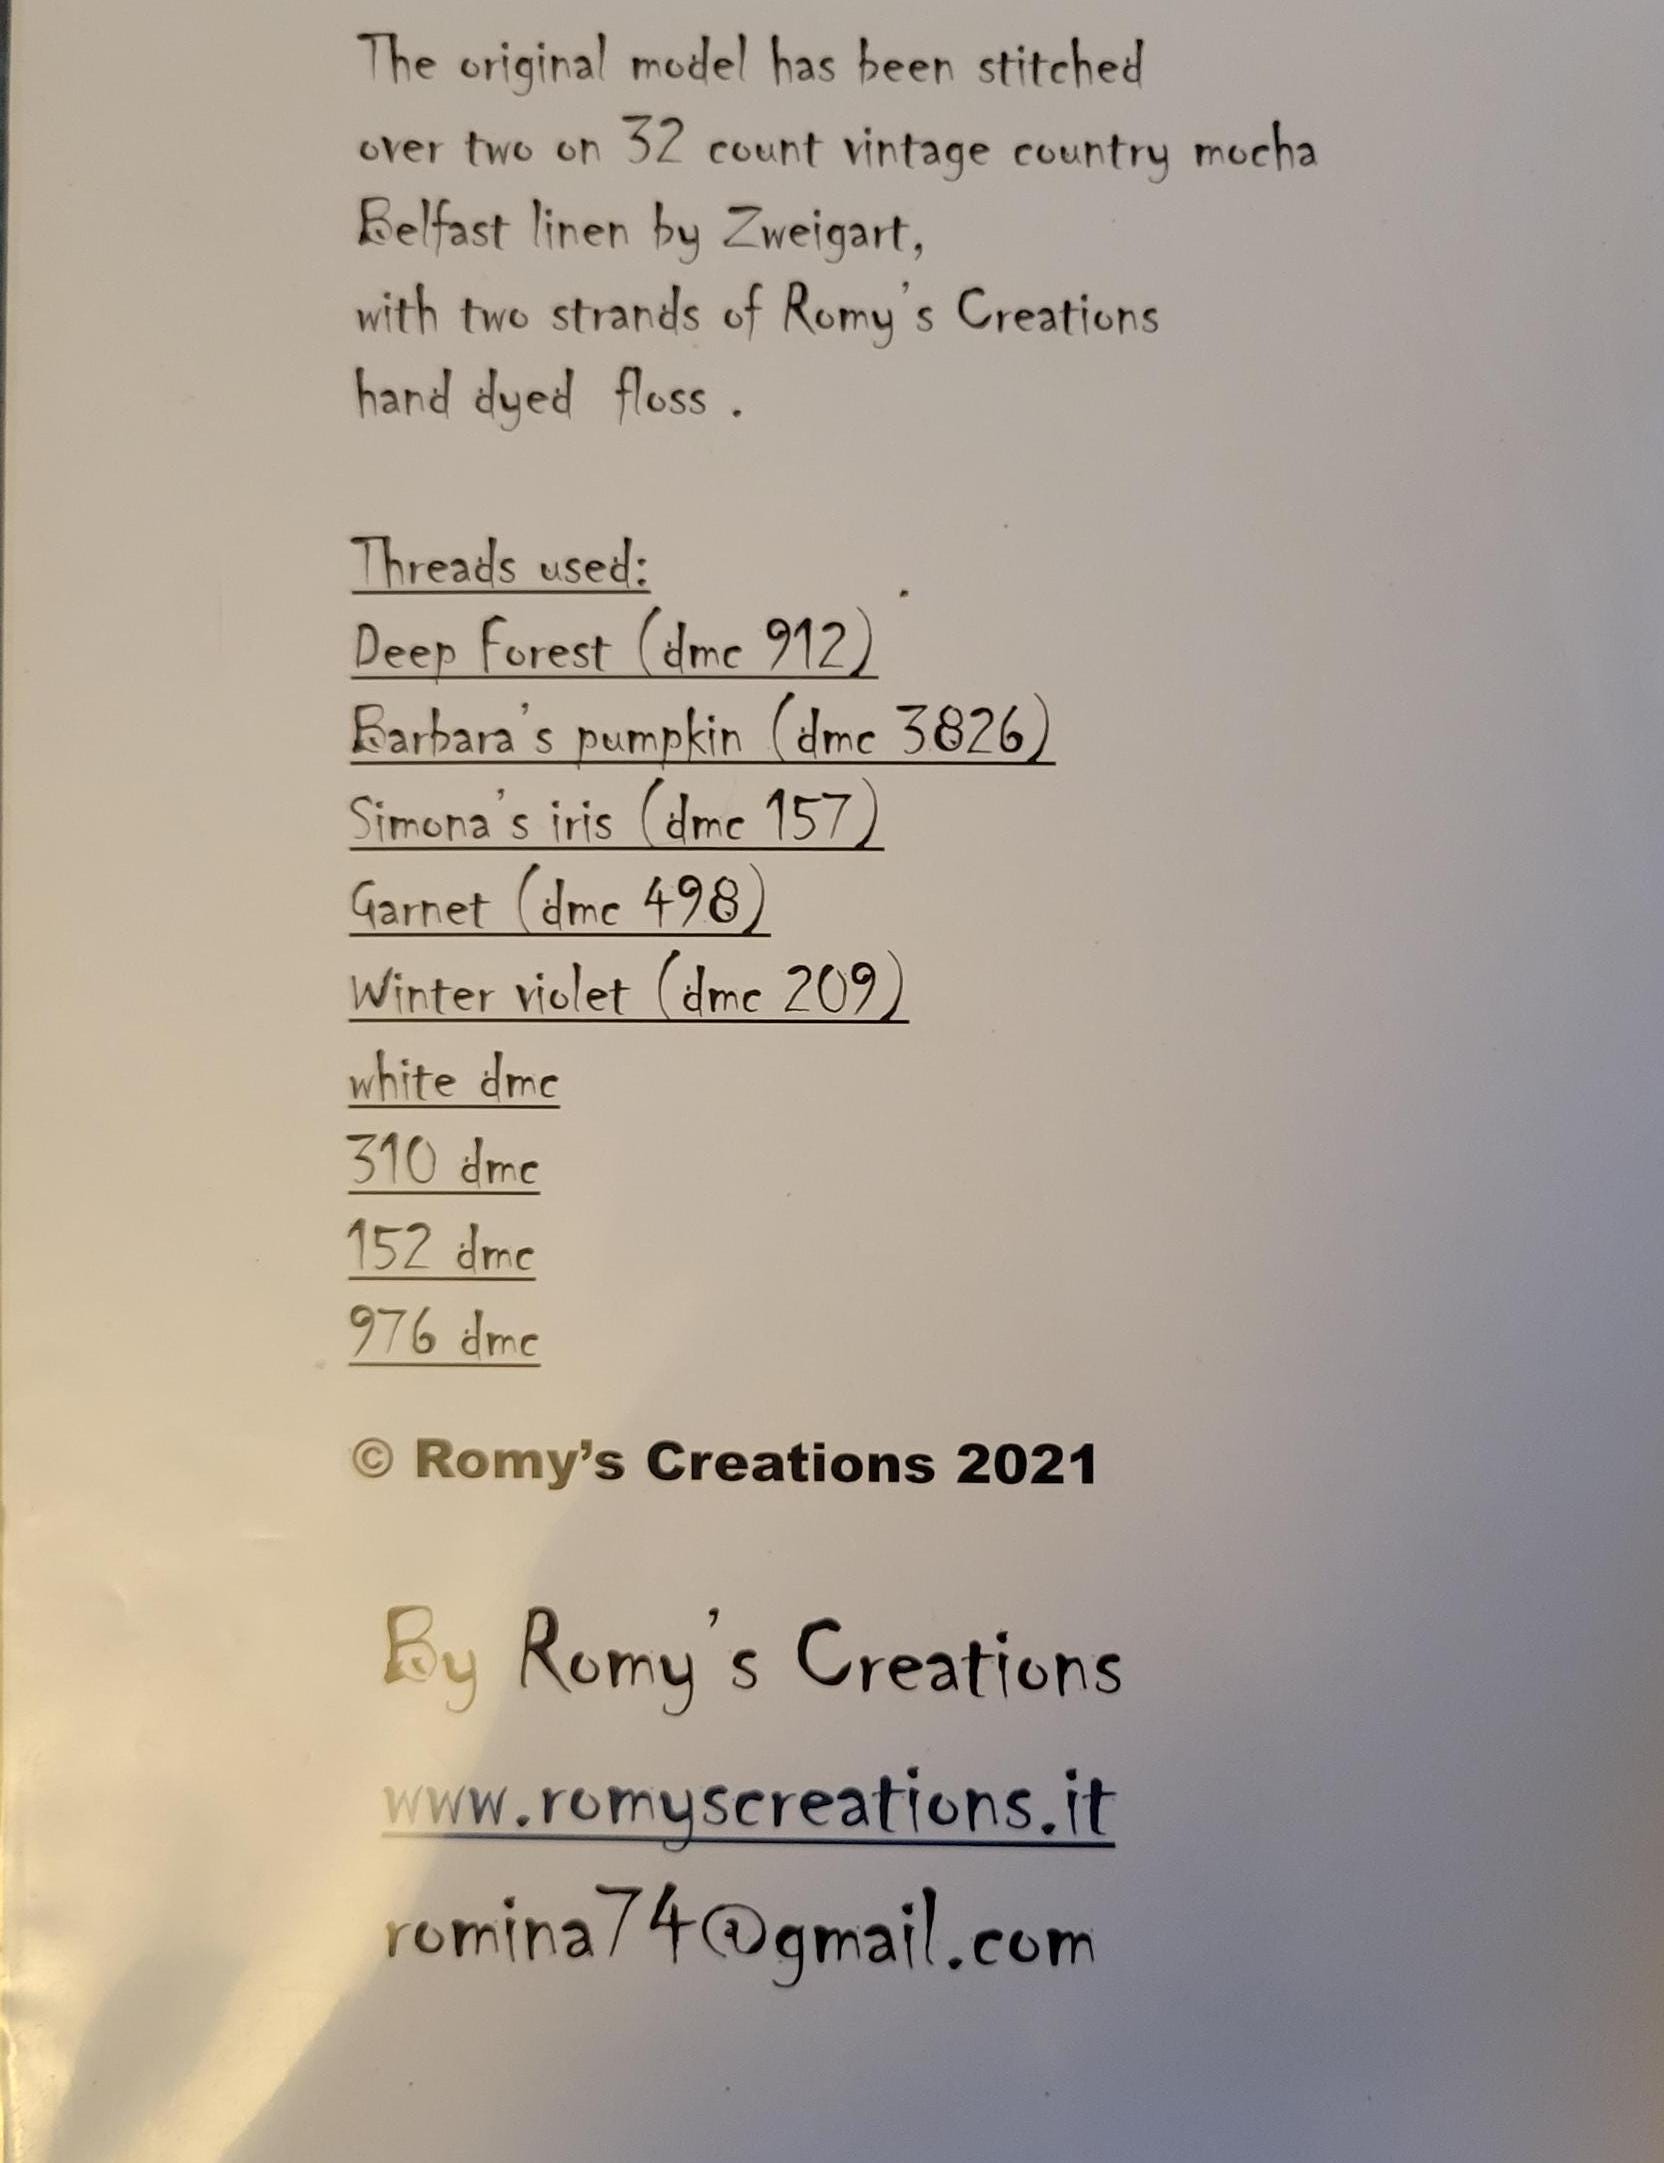 The original model has been stitched
over two on 32 count vintage country mocha
Belfast linen by Zweigart,
with two strands of Romy's Creations
hand dyed floss .
Threads used:
Deep Forest (dmc 912)
Barbara's pumpkin (dmc 3826)
Simona's iris (dmc 157)
Garnet (dmc 498)
Winter violet (dmc 209)
white dmc
310 dmc
152 dmc
976 dmc
© Romy’s Creations 2021
By Romy's Creations
www.romyscreations.it
romina74@gmail.com